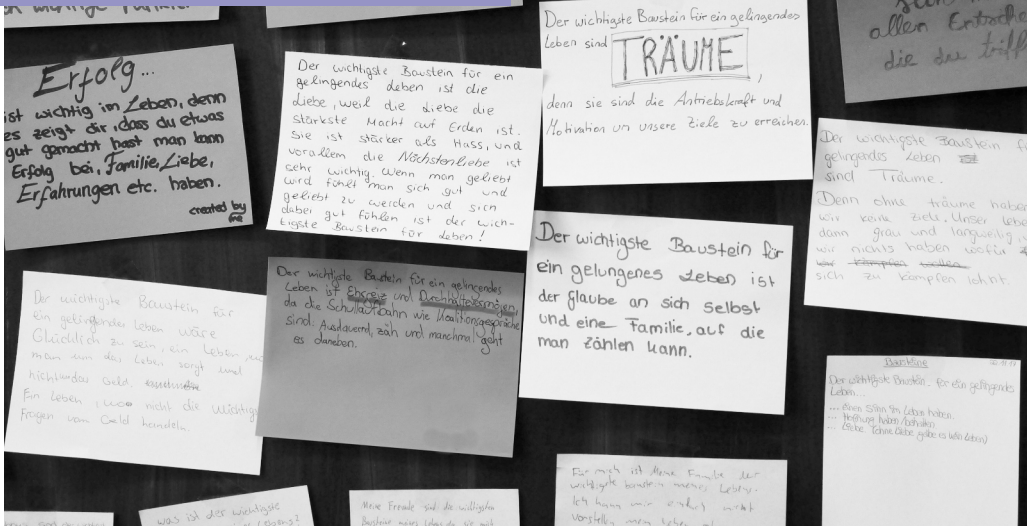 Erfolg...
ist wichtig im Leben, denn
es zeigt dir, dass du etwas
gut gemacht hast man kann
Erfolg bei, Familie, Liebe,
Erfahrungen etc. haben.
created by
me
Der wichtigste Baustein für ein
gelingendes Leben ist die
Liebe, weil die Liebe die
stärkste Macht auf Erden ist.
Sie ist stärker als Hass, und
vorallem die Nächstenliebe ist
sehr wichtig. Wenn man geliebt
wird fühlt man sich gut und
geliebt zu werden und sich
dabei gut fühlen ist der wich-
tigste Baustein für Leben!
Der wichtigste Baustein für ein gelingendes
Leben sind TRÄUME,
denn sie sind die Antriebskraft und
Motivation um unsere Ziele zu erreichen.
allen Entsche
die du triff
Der wichtigste Baustein f
gelingendes Leben
sind Träume.
Denn ohne träume habe
wir keine Ziele. Unser Leben
dann grau und langweilig,
wir nichts haben wofür
sich zu kämpfen lohnt.
Der wichtigste Baustein für
ein gelingendes Leben wäre
Glücklich zu sein, ein Leben,
man um das Leben sorgt und
nicht um das Geld.
Ein Leben, wo nicht die wichtig
Fragen vom Geld handeln.
Der wichtigste Baustein für ein gelingendes
Leben ist Ehrgeiz und Durchhaltevermögen,
da die Schullaufbahn wie Koalitionsgespräche
sind: Ausdauernd, zäh und manchmal geht
es daneben.
Der wichtigste Baustein für
ein gelungenes Leben ist
der Glaube an sich selbst
und eine Familie, auf die
man zählen kann.
Bausteine
Der wichtigste Baustein für ein gelingendes
Leben...
... einen Sinn im Leben haben.
... Hoffnung haben/behalten
... Liebe (ohne Liebe gäbe es kein Leben)
was ist der wichtigste
Meine Freunde sind die wichtigsten
Bausteine meines Lebens, da sie mit
Für mich ist Meine Familie der
wichtigste baustein meines Lebens.
Ich kann mir einfach nicht
vorstellen mein Leben